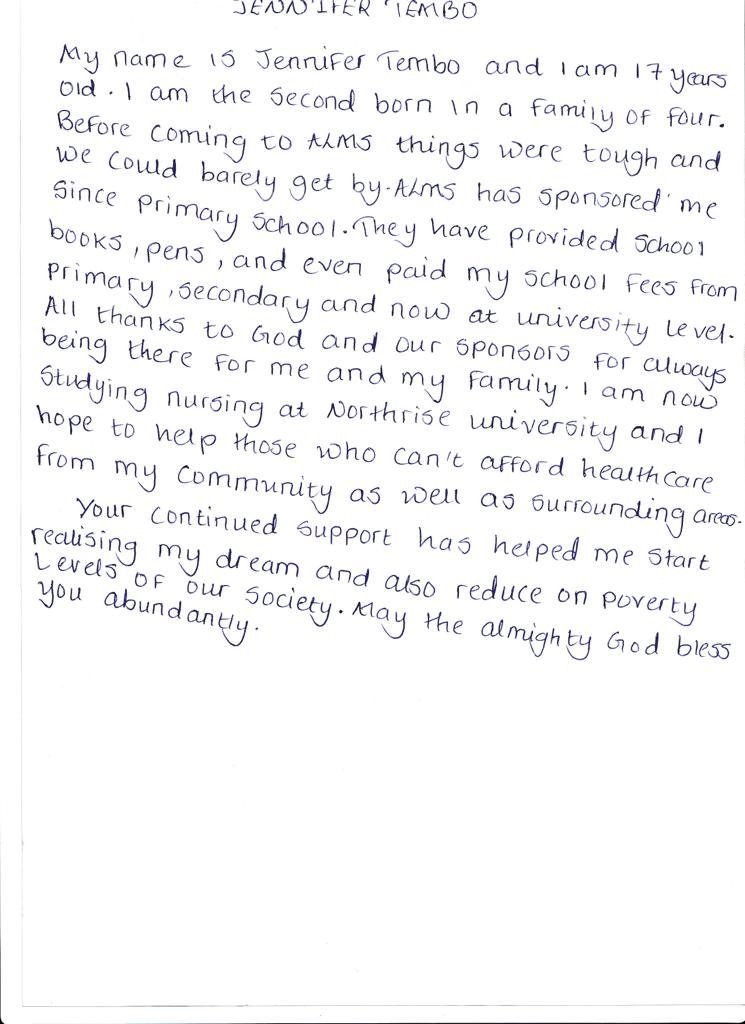 JENNIFER TEMBO
My name is Jennifer Tembo and I am 17 years
old. I am the second born in a family of four.
Before coming to ALMS things were tough and
we could barely get by. ALMS has sponsored me
since primary school. They have provided school
books, pens, and even paid my school fees from
primary, secondary and now at university level.
All thanks to God and our sponsors for always
being there for me and my family. I am now
studying nursing at Northrise university and I
hope to help those who can't afford healthcare
from my community as well as surrounding areas.
Your continued support has helped me start
realising my dream and also reduce on poverty
levels of our society. May the almighty God bless
you abundantly.